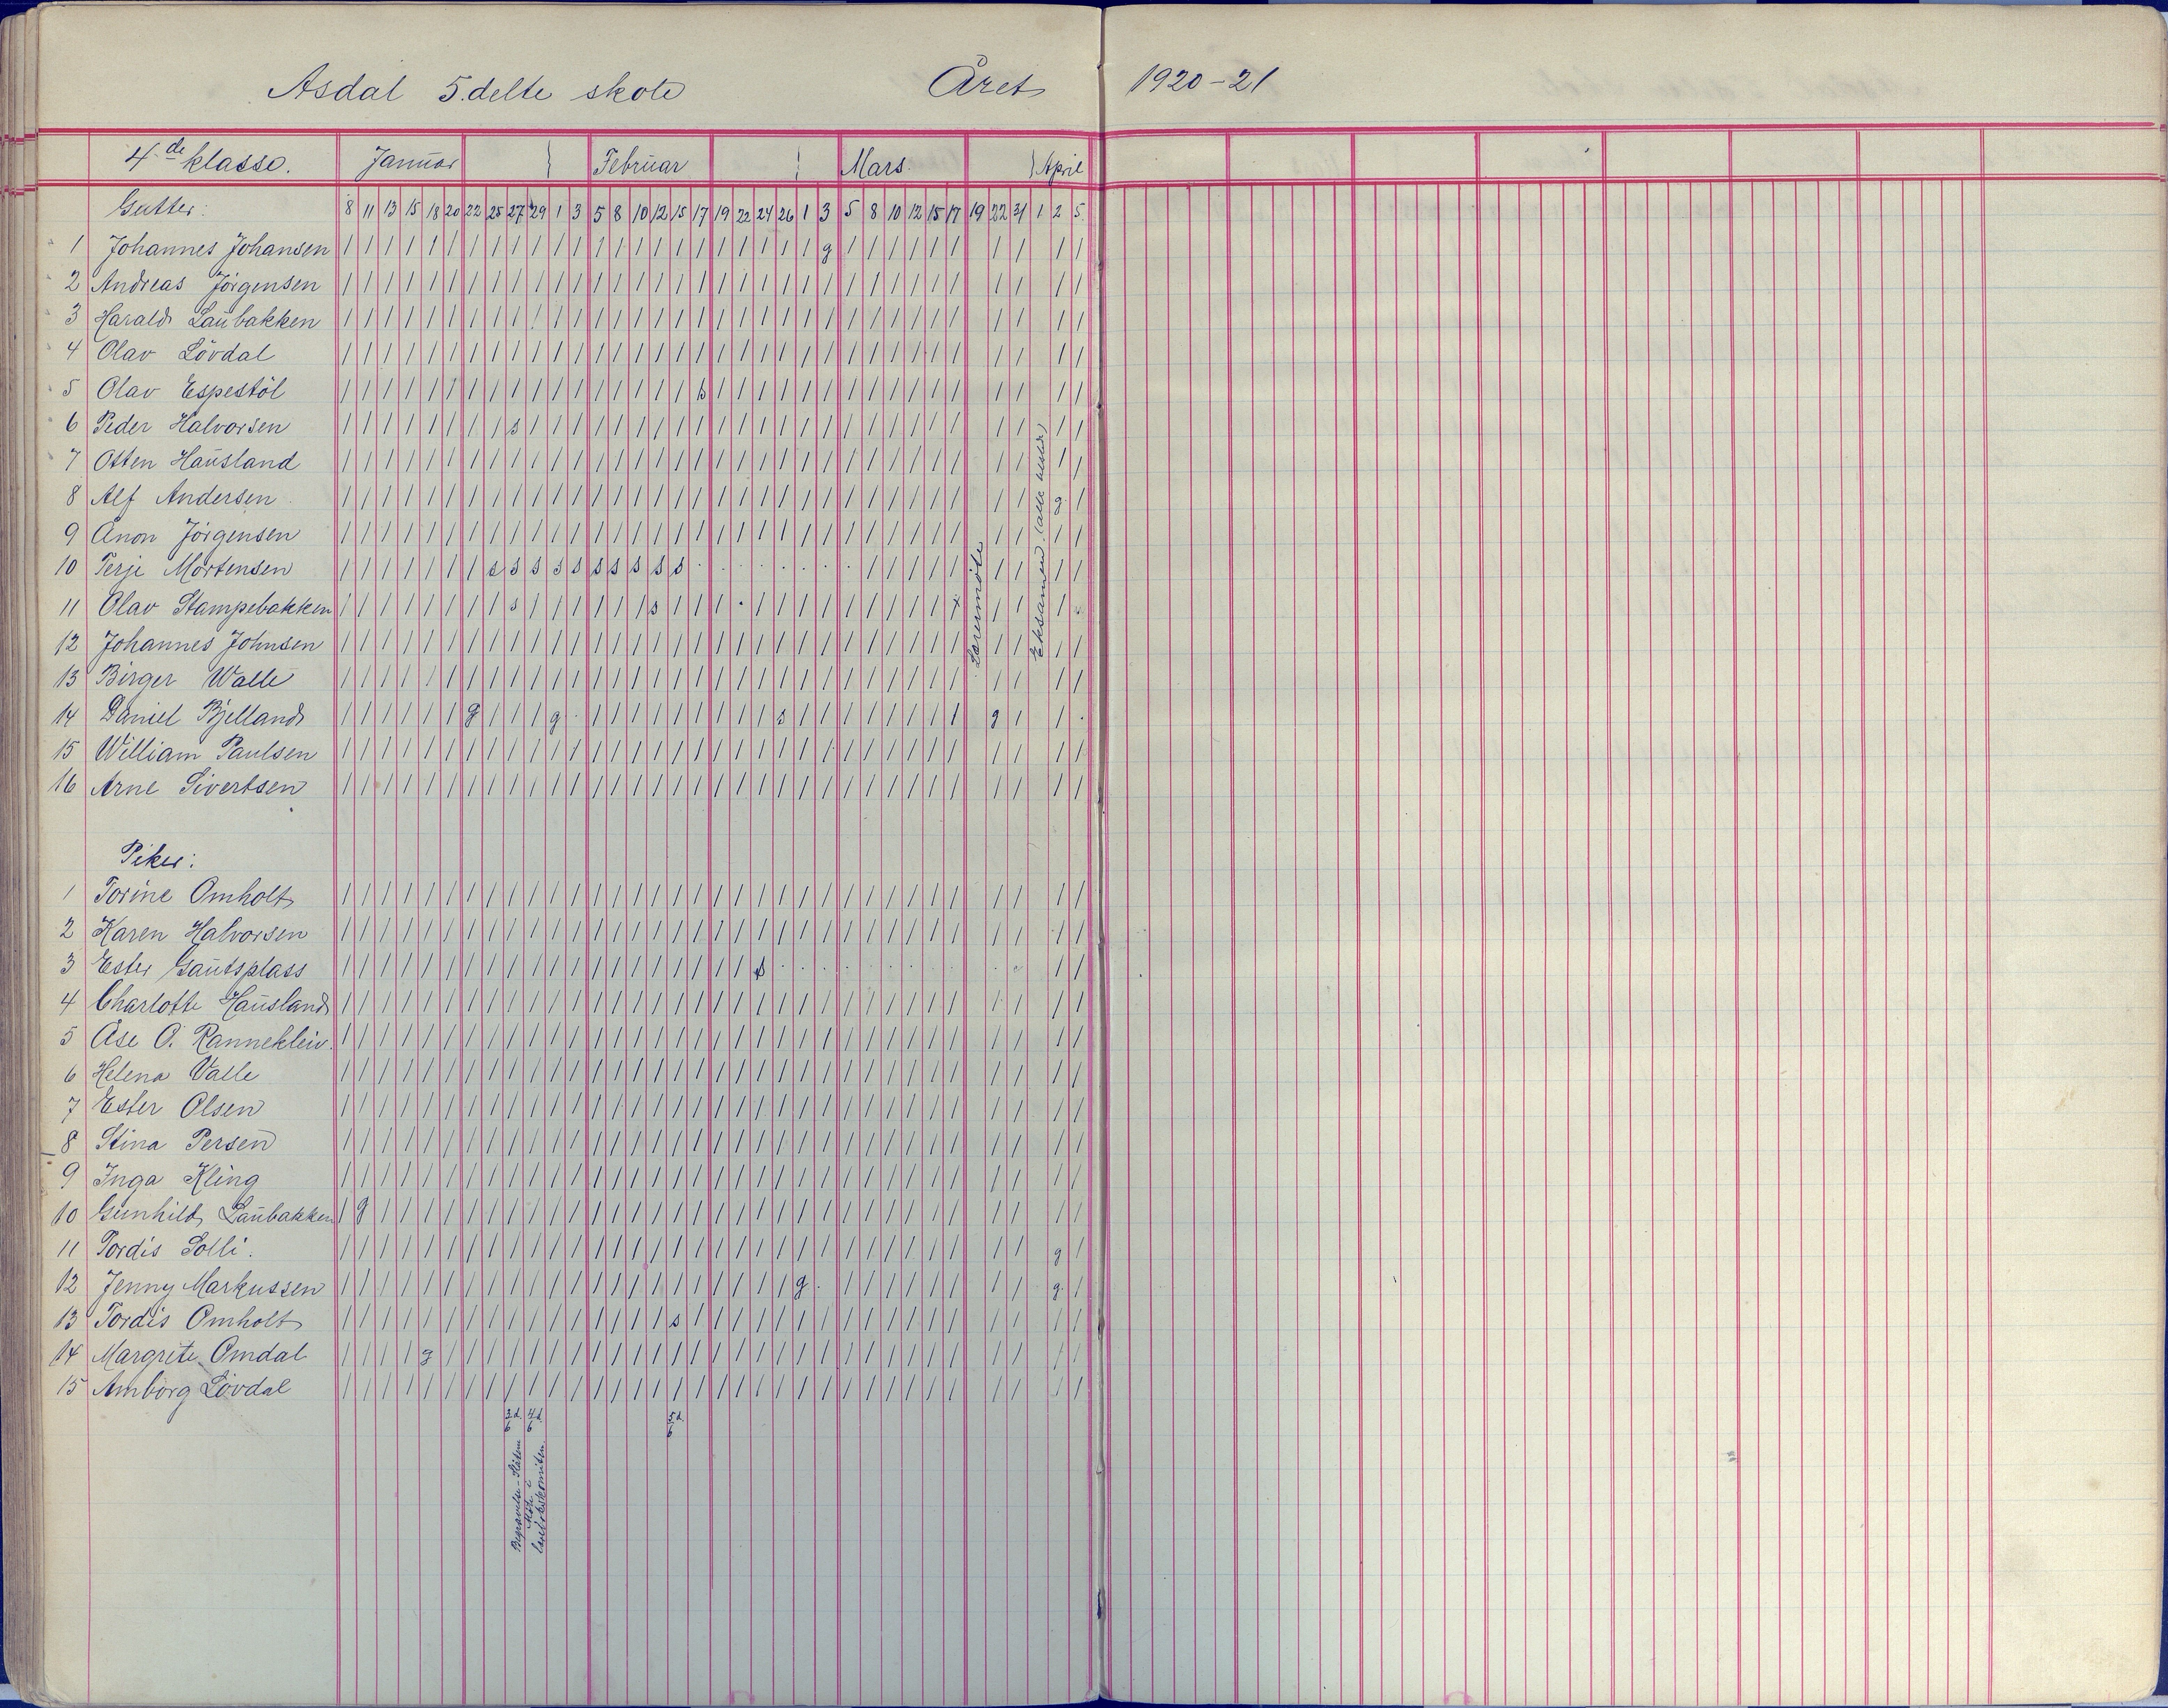 Asdal 5.delte skole Året 1920-21
4de klasse. Januar Februar Mars. April
Gutter: 8 11 13 15 18 20 22 25 27 29 1 3 5 8 10 12 15 17 19 22 24 26 1 3 5 8 10 12 15 17 19 22 31 1 2 5.
1 Johannes Johansen / / / / / / / / / / / / / / / / / / / / / / / g / / / / / / / / / /
2 Andreas Jörgensen / / / / / / / / / / / / / / / / / / / / / / / / / / / / / / / / / /
3 Harald Laubakken / / / / / / / / / / / / / / / / / / / / / / / / / / / / / / / / / /
4 Olav Lövdal / / / / / / / / / / / / / / / / / / / / / / / / / / / / / / / / / /
5 Olav Espestöl / / / / / / / / / / / / / / / / / s / / / / / / / / / / / / / / / / /
6 Peder Halvorsen / / / / / / / / s / / / / / / / / / / / / / / / / / / / / / / / / /
7 Osten Hausland / / / / / / / / / / / / / / / / / / / / / / / / / / / / / / / / / /
8 Alf Andersen / / / / / / / / / / / / / / / / / / / / / / / / / / / / / / / / g. /
9 Anon Jörgensen / / / / / / / / / / / / / / / / / / / / / / / / / / / / / / / / / /
10 Terje Mortensen / / / / / / / s s s s s s s s s s . . . . . . . . / / / / / / / / /
11 Olav Stampebakken / / / / / / / / s / / / / / / s / / / . / / / / / / / / / / / / /
12 Johannes Johnsen / / / / / / / / / / / / / / / / / / / / / / / / / / / / / / / / / /
13 Birger Walle / / / / / / / / / / / / / / / / / / / / / / / / / / / / / / / / / /
14 Daniel Bjelland / / / / / / g / / / g . / / / / / / / / / s / / / / / / / / g / / .
15 William Paulsen / / / / / / / / / / / / / / / / / / / / / / / / / / / / / / / / / /
16 Arne Sivertsen / / / / / / / / / / / / / / / / / / / / / / / / / / / / / / / / / /
Læremöte
Eksamen (alle klasser)
Piker:
1 Torine Omholt / / / / / / / / / / / / / / / / / / / / / / / / / / / / / / / / / /
2 Karen Halvorsen / / / / / / / / / / / / / / / / / / / / / / / / / / / / / / / / / /
3 Ester Gautsplass / / / / / / / / / / / / / / / / / / / / s . . . . . . . . . . . / /
4 Charlotte Hausland / / / / / / / / / / / / / / / / / / / / / / / / / / / / / / / / / /
5 Åse O. Rannekleiv. / / / / / / / / / / / / / / / / / / / / / / / / / / / / / / / / / /
6 Helena Valle / / / / / / / / / / / / / / / / / / / / / / / / / / / / / / / / / /
7 Ester Olsen / / / / / / / / / / / / / / / / / / / / / / / / / / / / / / / / / /
8 Stina Persen / / / / / / / / / / / / / / / / / / / / / / / / / / / / / / / / / /
9 Inga Kling / / / / / / / / / / / / / / / / / / / / / / / / / / / / / / / / / /
10 Gunhild Laubakken / g / / / / / / / / / / / / / / / / / / / / / / / / / / / / / / / /
11 Tordis Solli. / / / / / / / / / / / / / / / / / / / / / / / / / / / / / / / / g /
12 Jenny Markussen / / / / / / / / / / / / / / / / / / / / / / g . / / / / / / / / g. /
13 Tordis Omholt / / / / / / / / / / / / / / / / s / / / / / / / / / / / / / / / / /
14 Margrete Omdal / / / / g / / / / / / / / / / / / / / / / / / / / / / / / / / / / /
15 Amborg Lövdal / / / / / / / / / / / / / / / / / / / / / / / / / / / / / / / / / /
3/6 d. 4/6 d. 5/6 d.
Begravelse
Möte i